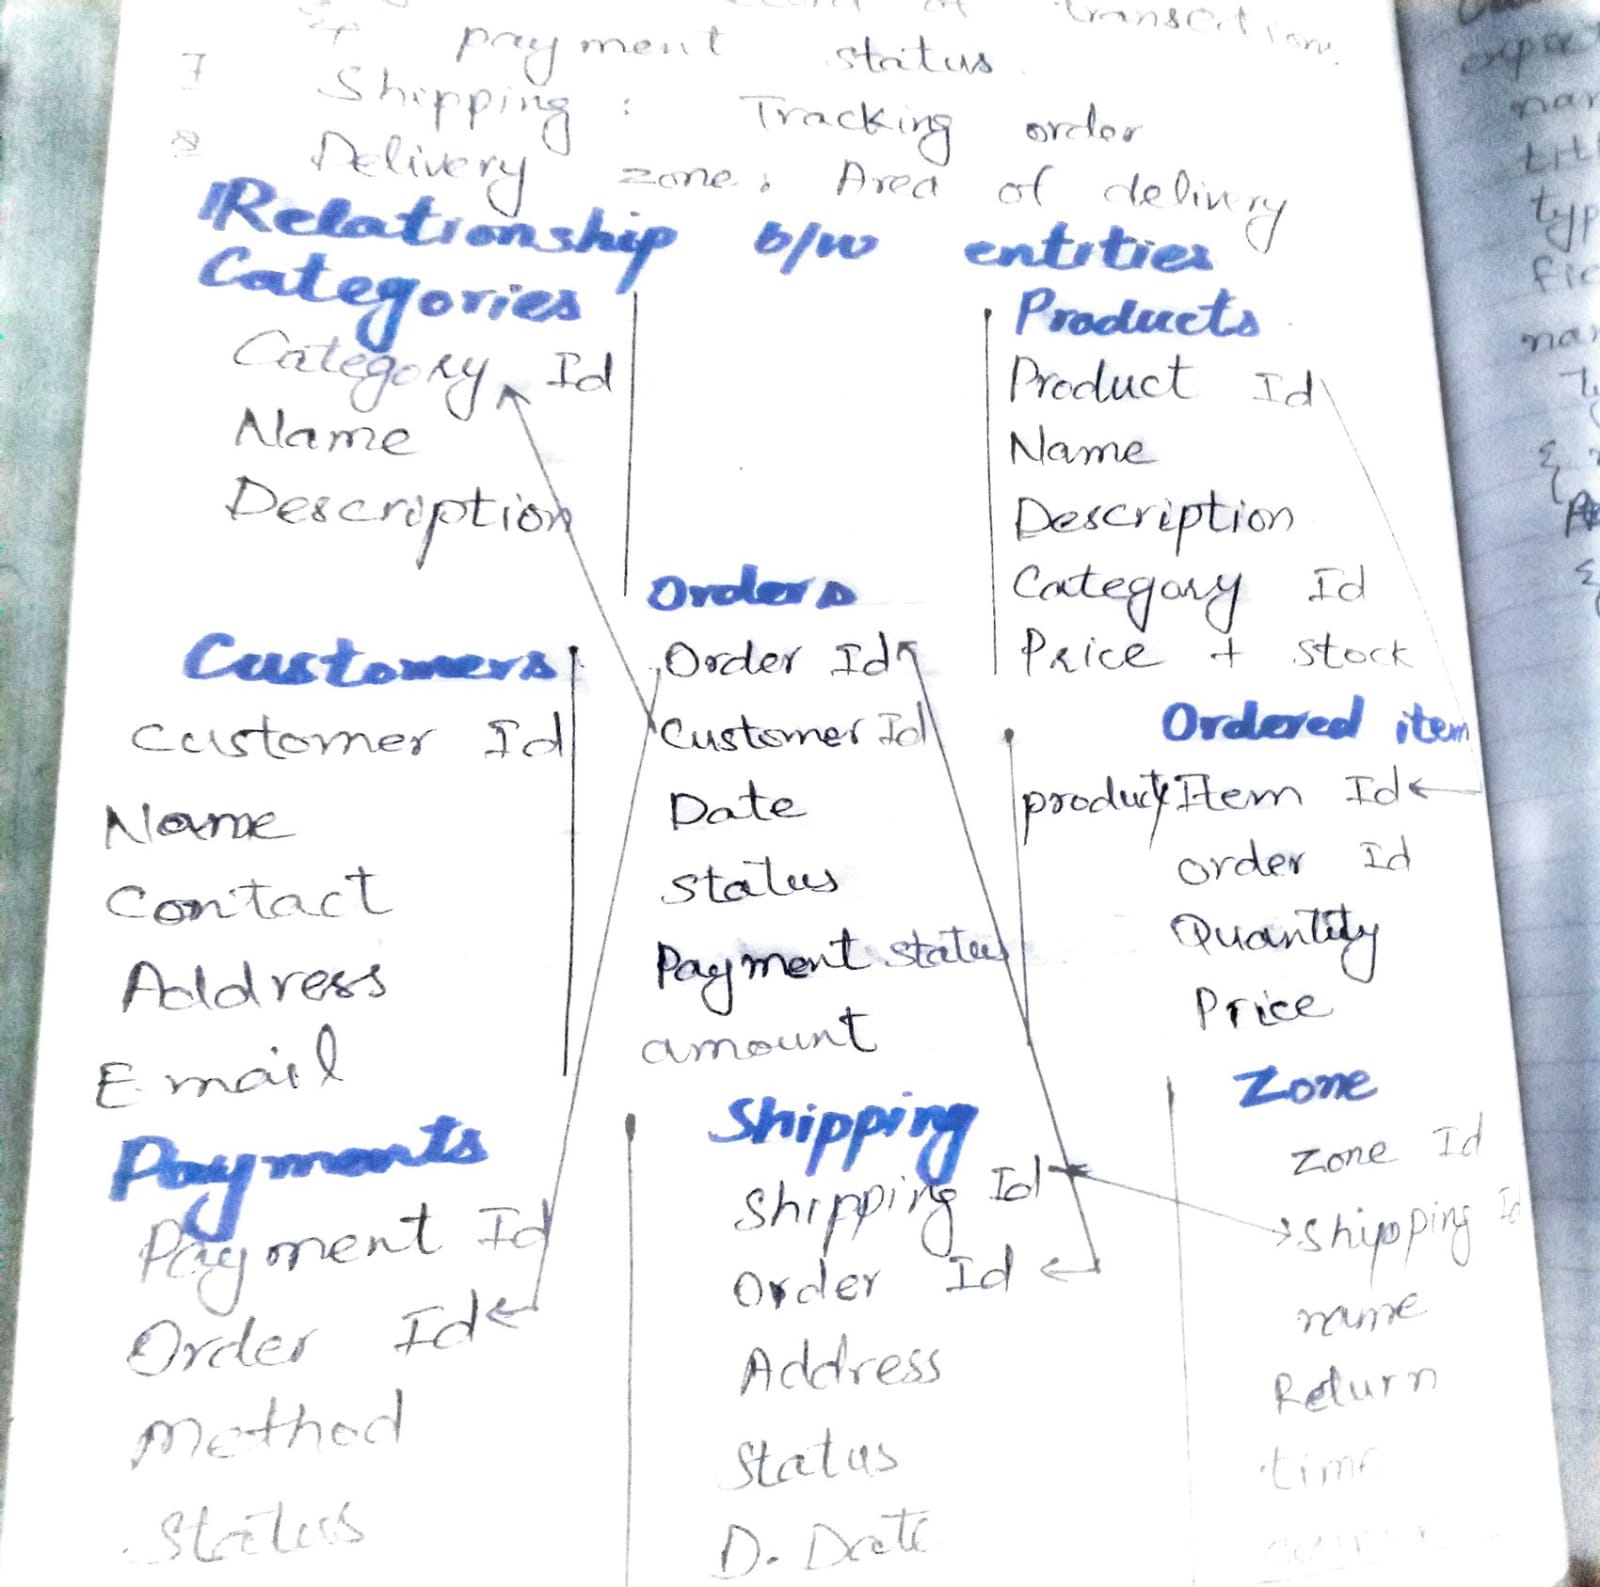 of transection
payment status
7 Shipping : Tracking order
8 Delivery zone: Area of delivery
Relationship b/w entities
Categories
Category Id
Name
Description
Products
Product Id
Name
Description
Category Id
Price + Stock
Customers
Customer Id
Name
Contact
Address
Email
Orders
Order Id
Customer Id
Date
status
Payment status
amount
Ordered item
product Item Id
order Id
Quantity
Price
Payments
Payment Id
Order Id
Method
Status
Shipping
Shipping Id
Order Id
Address
Status
D. Date
Zone
Zone Id
Shipping Id
name
Return
time